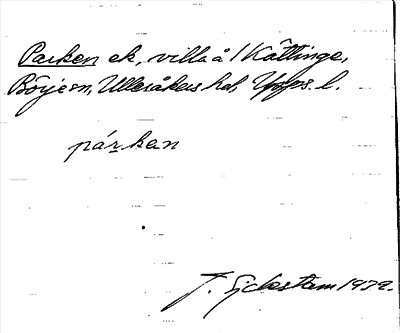 Parken ek, villa å 1 Kättinge,
Börje sn, Ulleråkers hd, Upps. l.
párkan
J. Sjelestam 1939.